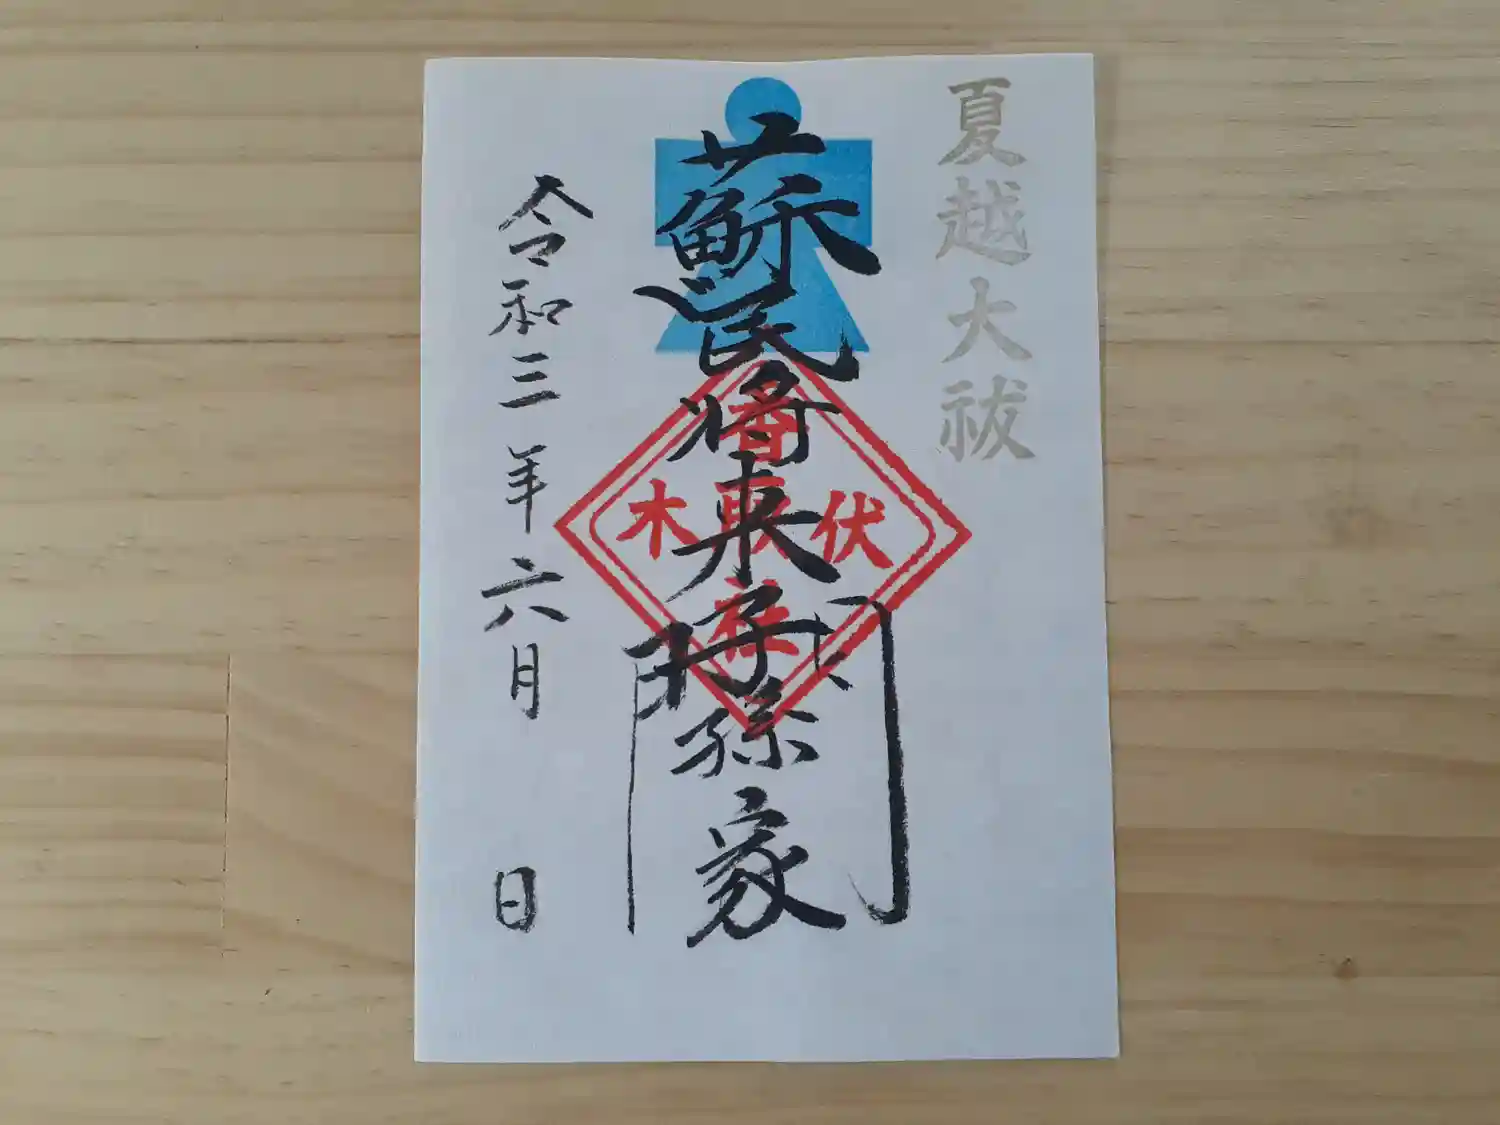 夏越大祓
蘇民将来子孫家門
伏木香取社
令和三年六月 日